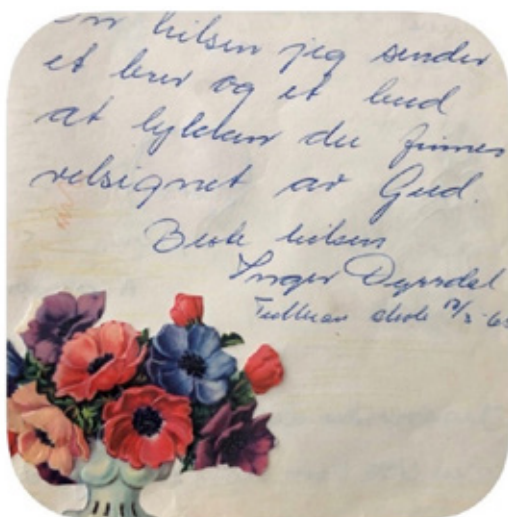 En hilsen jeg sender
et brev og et bud
at lykken du finner
velsignet av Gud.
Beste hilsen
Inger Dyrdal
skole 12/2-6